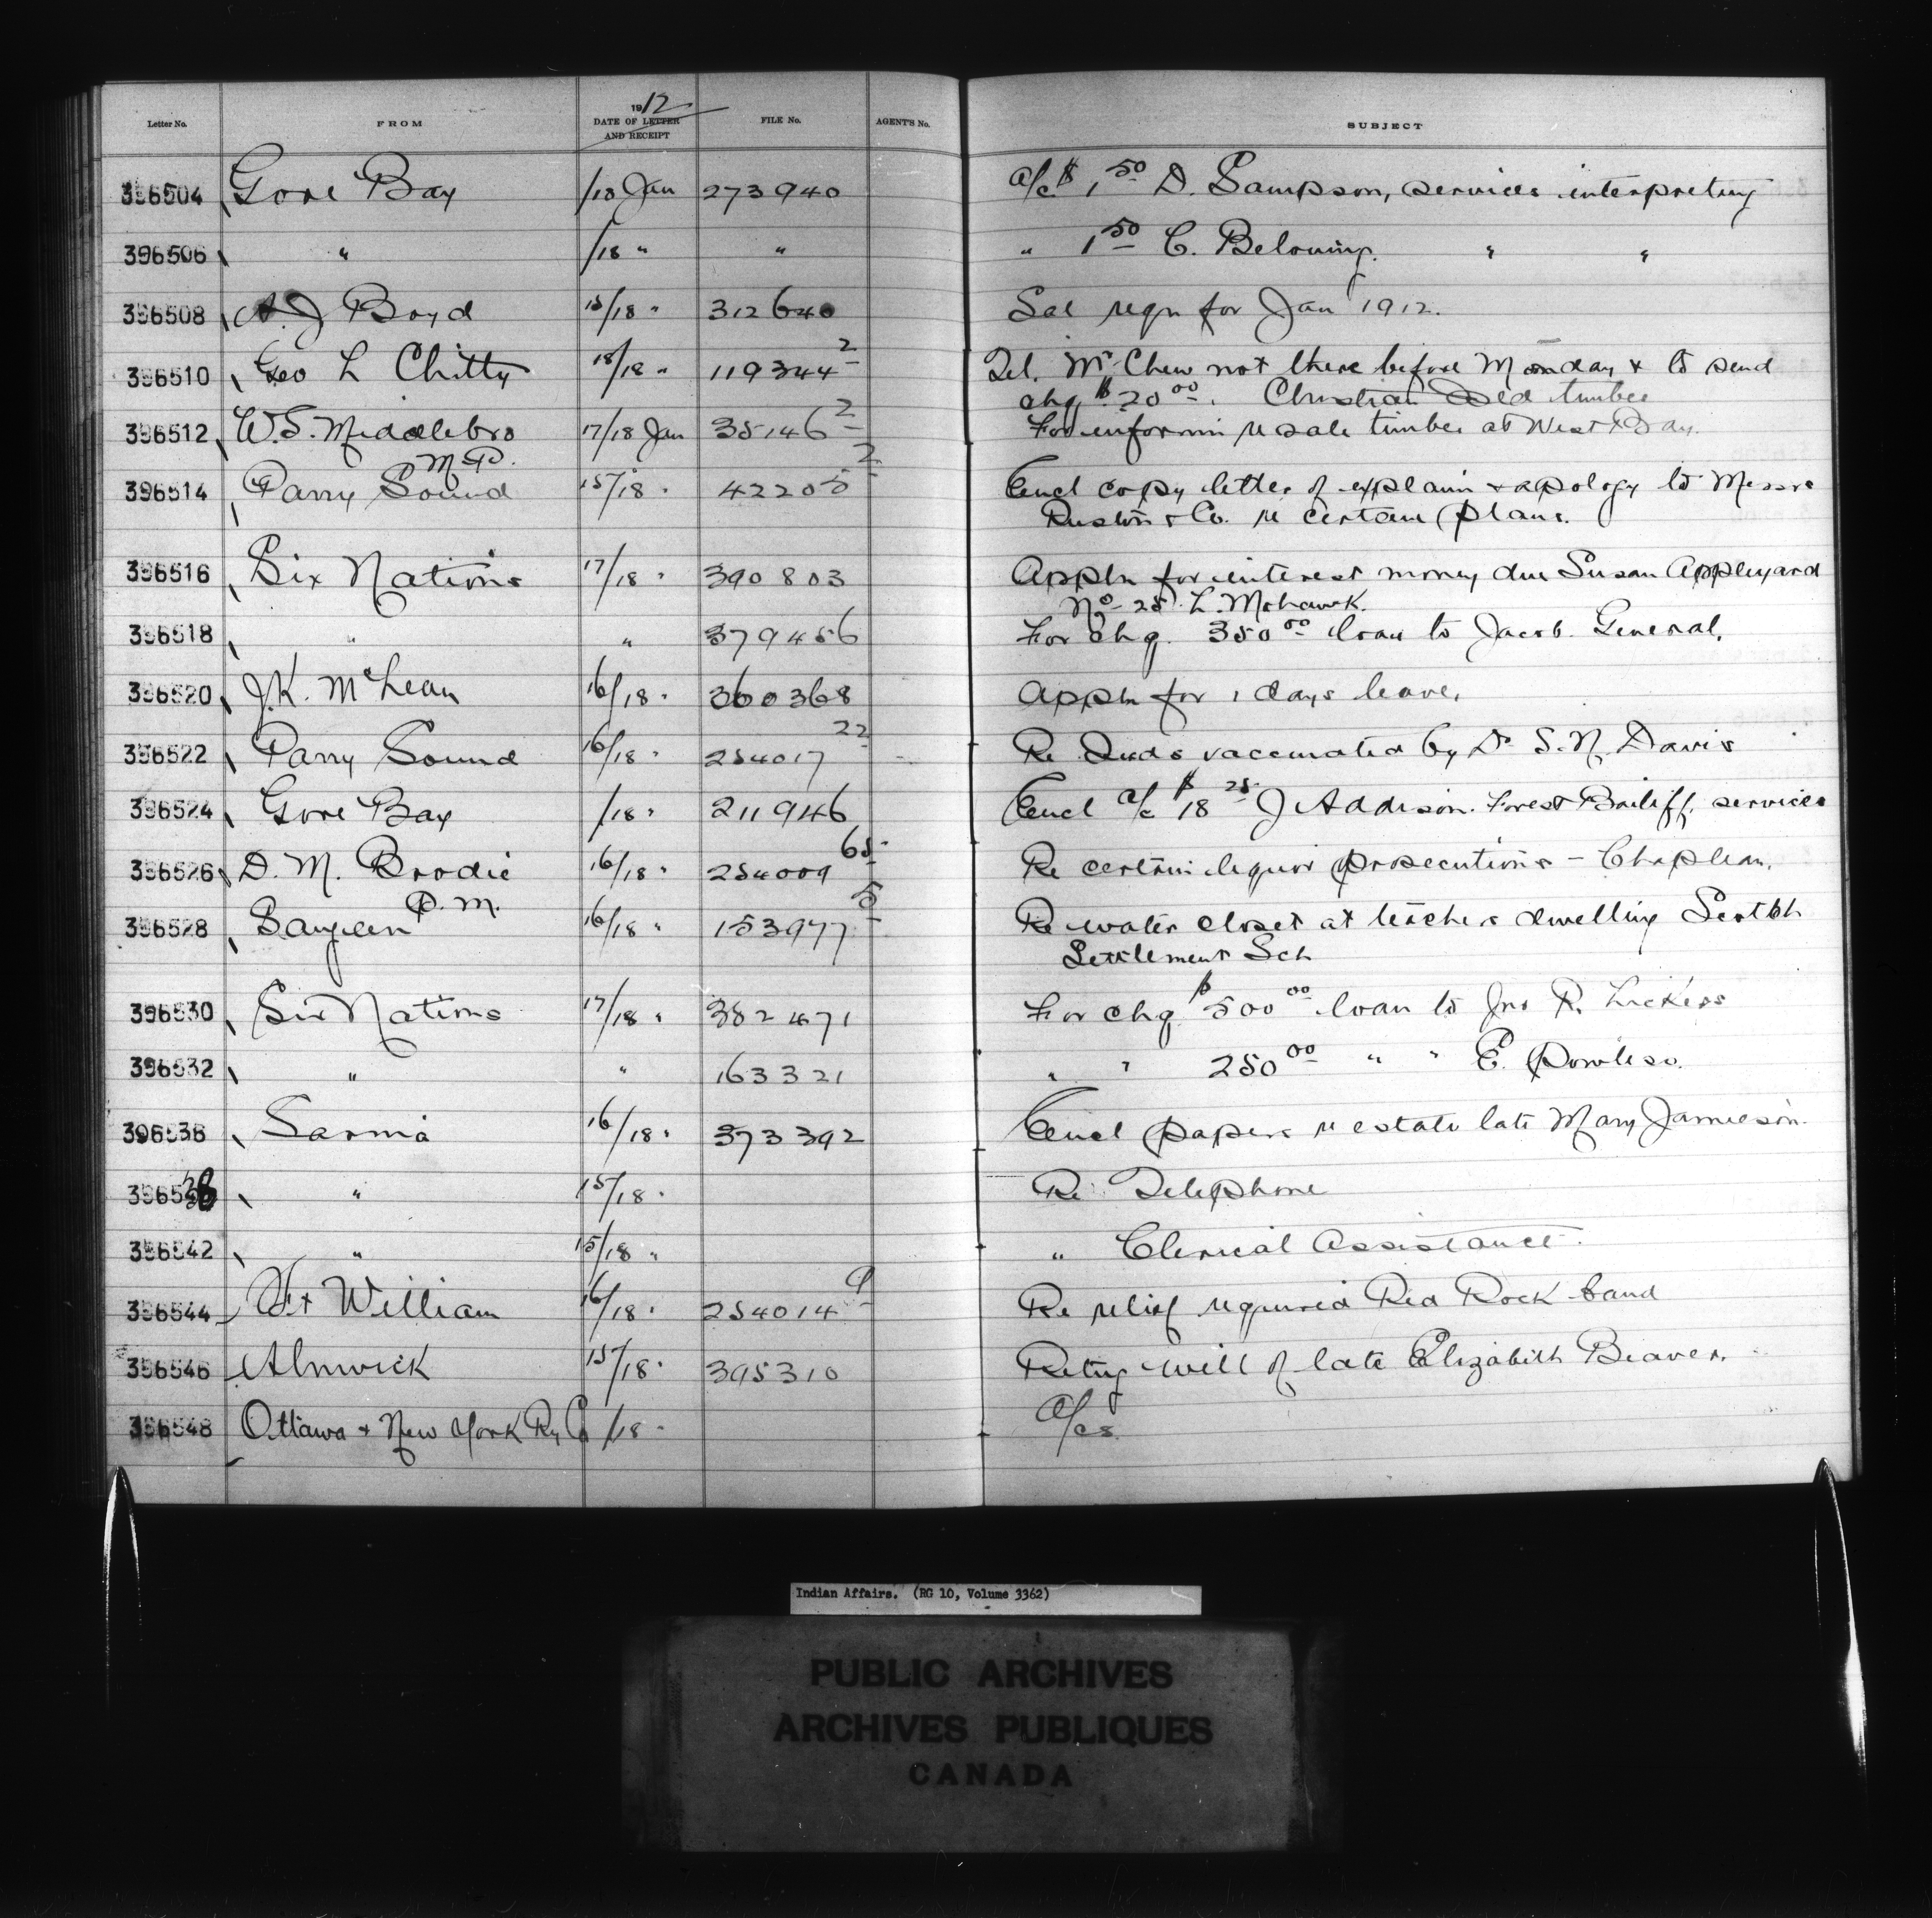 Letter No. FROM 1912 DATE OF LETTER AND RECEIPT FILE No. AGENT'S No. SUBJECT
396504 Gore Bay /18 Jan 273940 a/c $1.50 D. Sampson, services interpreting
396506 " /18 " " " 1.50 C. Belouing. " "
396508 A. J Boyd 15/18 " 312640 Sal reqn for Jan 1912.
396510 Geo L Chitty 18/18 " 119344-2 Tel. Mr Chew not there before Monday & to send
chq $20.00. Christian Isld timber
396512 W.S. Middlebro M.P. 17/18 Jan 35146-2 For informn re sale timber at West Bay.
396514 Parry Sound 15/18 " 42205-2 Encl copy letter of explann & apology to Messrs
Ruston & Co. re certain plans.
396516 Six Nations 17/18 " 390803 Appln for interest money due Susan Appleyard
No 25 L. Mohawk.
396518 " " 379456 For chq. 350.00 loan to Jacob General.
396520 J.K. McLean 16/18 " 360368 Appln for 1 days leave.
396522 Parry Sound 16/18 " 254017-22 Re Inds vaccinated by Dr S. N. Davis
396524 Gore Bay /18 " 211946 Encl a/c $18.25 J Addison. Forest Bailiff, services
396526 D. M. Brodie P.M. 16/18 " 254009-65 Re certain liquor prosecutions - Chapleau.
396528 Saugeen 16/18 " 153977-5 Re water closet at teachers dwelling Scotch
Settlement Sch
396530 Six Nations 17/18 " 382471 For chq $500.00 loan to Jno R. Lickers
396532 " " 163321 " " 250.00 " " E. Powless.
396536 Sarnia 16/18 " 373392 Encl papers re estate late Mary Jamieson.
396538 " 15/18 " Re Telephone
396542 " 15/18 " " Clerical Assistance.
396544 Ft William 16/18 " 254014-9 Re relief required Red Rock band
396546 Alnwick 15/18 " 395310 Retng will of late Elizabeth Beaver.
396548 Ottawa & New York Ry Co /18 " a/cs.
Indian Affairs. (RG 10, Volume 3362)
PUBLIC ARCHIVES
ARCHIVES PUBLIQUES
CANADA